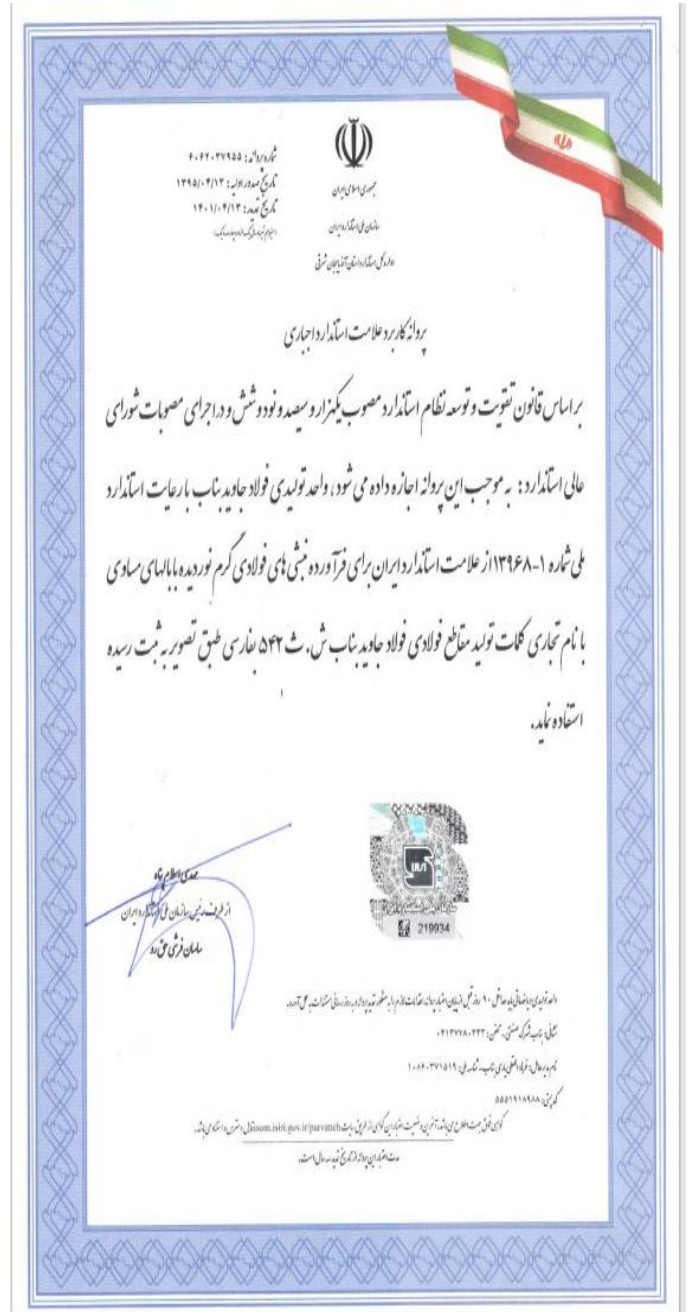 شماره پروانه: ۶۰۶۲۰۳۷۹۵۵
تاریخ صدور اولیه: ۱۳۹۵/۰۴/۱۳
تاریخ تمدید: ۱۴۰۱/۰۴/۱۳
جمهوری اسلامی ایران
سازمان ملی استاندارد ایران
اداره کل استاندارد استان آذربایجان شرقی
پروانه کاربرد علامت استاندارد اجباری
بر اساس قانون تقویت و توسعه نظام استاندارد مصوب یکهزار و سیصد و نود و شش و در اجرای مصوبات شورای
عالی استاندارد: به موجب این پروانه اجازه داده می شود، واحد تولیدی فولاد جاوید بناب با رعایت استاندارد
ملی شماره ۱-۱۳۹۶۸ از علامت استاندارد ایران برای فرآورده نبشی های فولادی گرم نوردیده با بالهای مساوی
با نام تجاری کلمات تولید مقاطع فولادی فولاد جاوید بناب ش. ث ۵۴۲ بفارسی طبق تصویر به ثبت رسیده
استفاده نماید.
ISIRI
219934
مهدی اسلام پناه
از طرف رئیس سازمان ملی استاندارد ایران
سامان فرشی حق رو
واحد تولیدی و یا خدماتی باید حداقل ۹۰ روز قبل از پایان اعتبار پروانه، اقدامات لازم را به منظور تمدید پروانه و به روز رسانی مستندات به عمل آورد.
نشانی: بناب شهرک صنعتی - تلفن: ۰۴۱۳۷۷۸۰۲۳۳
نام مدیرعامل: فرهاد لطفعلی یاری بناب - شناسه ملی: ۱۰۸۶۰۳۷۱۵۱۹
کد پستی: ۵۵۵۱۹۱۸۹۸۸
گواهی فوق جهت اطلاع می باشد، آخرین وضعیت اعتبار این گواهی از طریق سایت isom.isiri.gov.ir/parvaneh قابل دسترس و استناد می باشد.
مدت اعتبار این پروانه از تاریخ تمدید سه سال است.